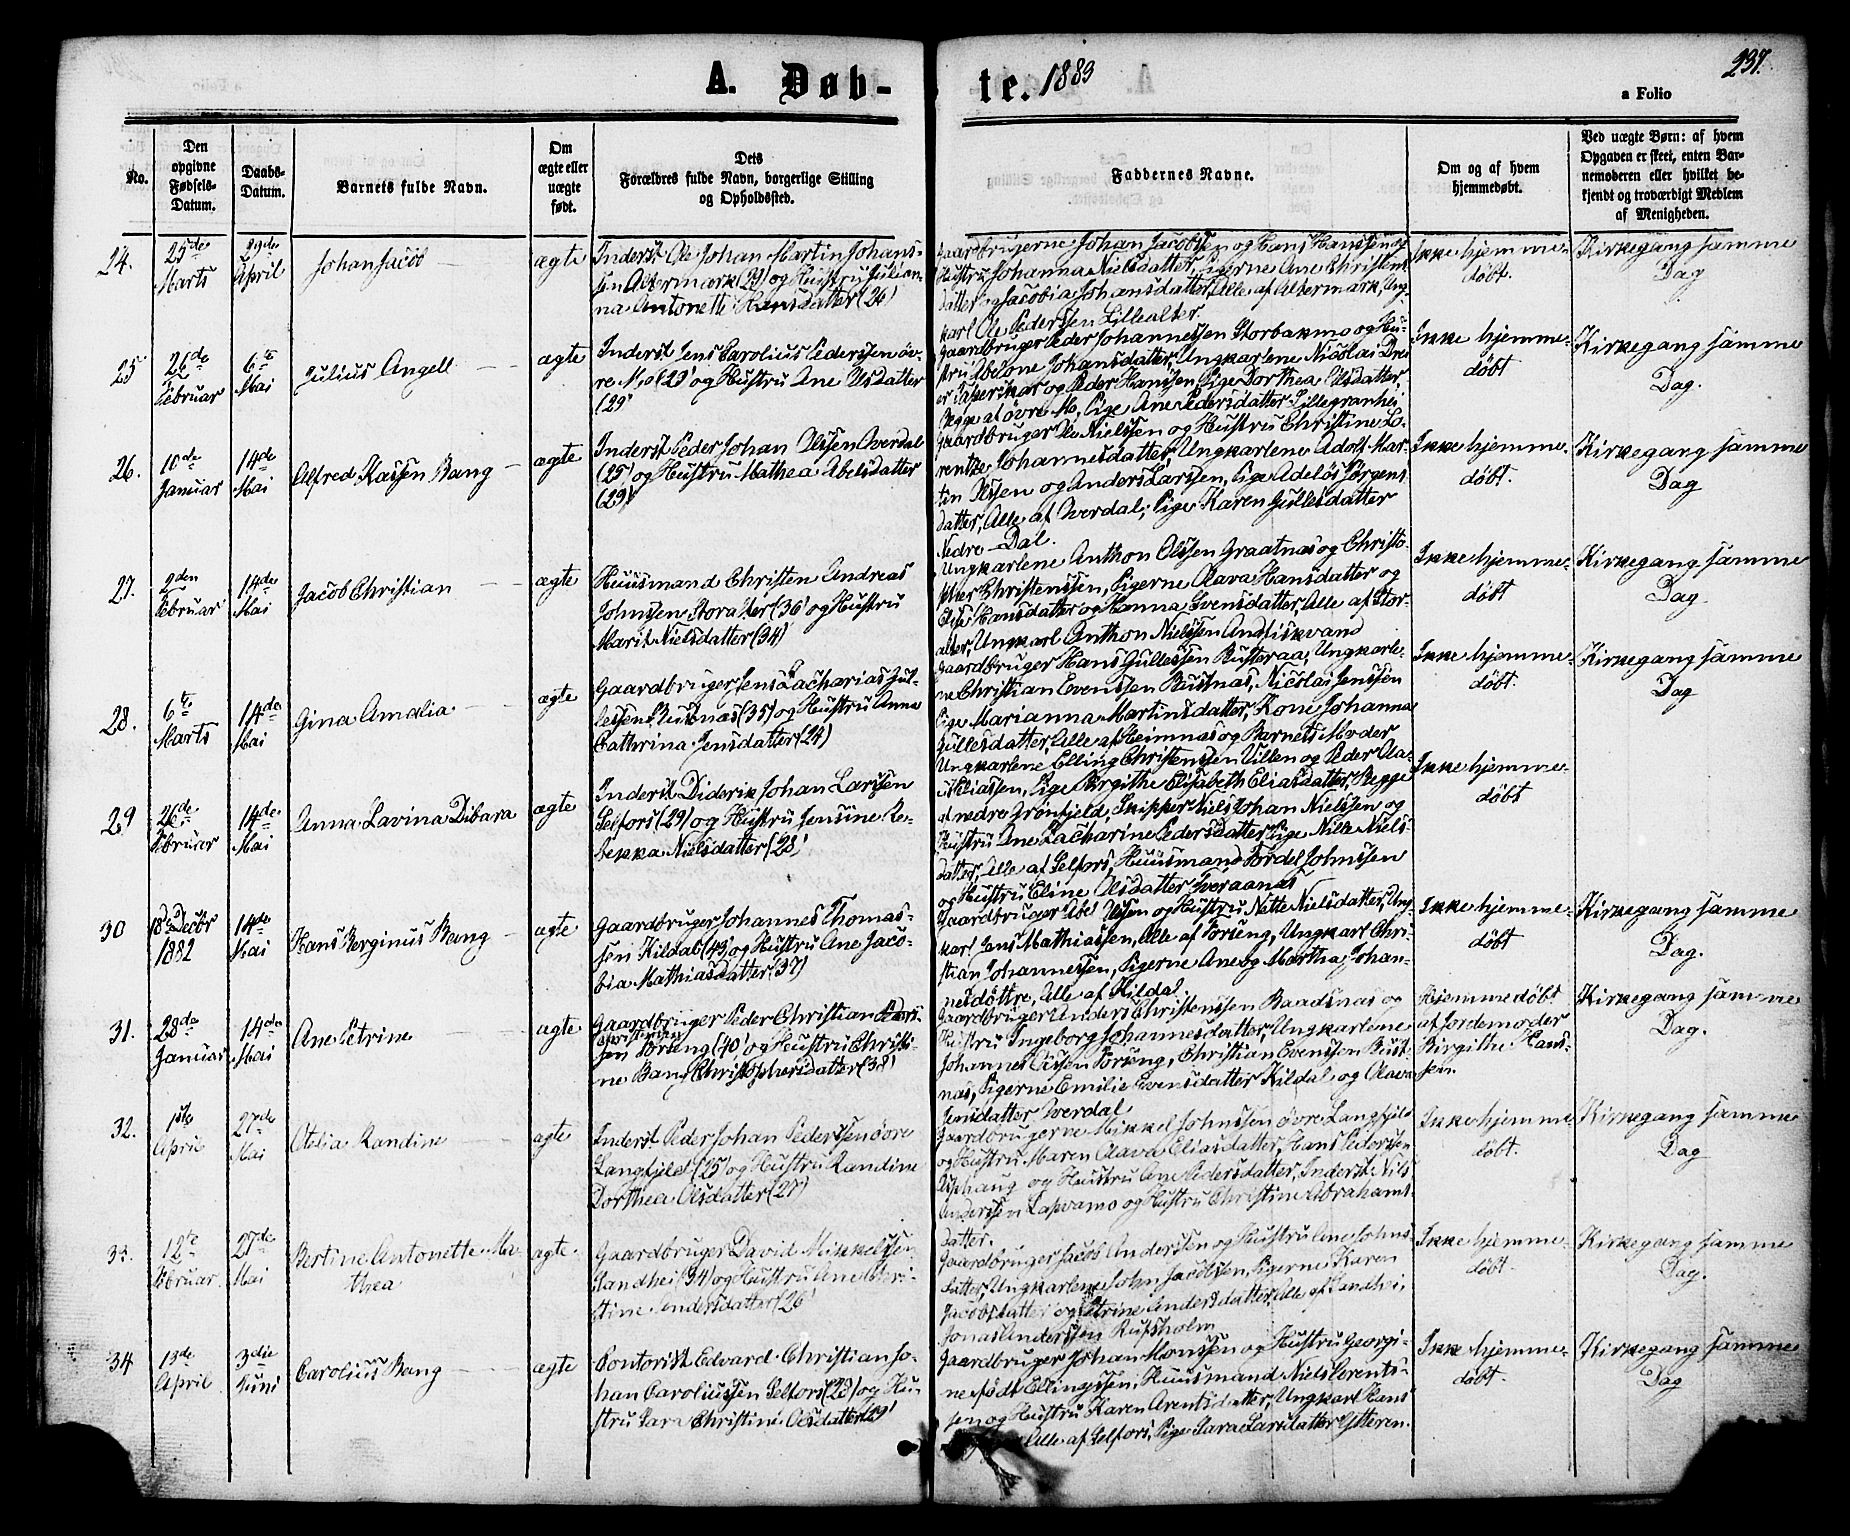 237.
A. Døb-
te. 1883
a Folio
No.
Den
opgivne
Fødsels-
Datum.
Daabs-
Datum.
Barnets fulde Navn.
Om
ægte eller
uægte
født.
Dets
Forældres fulde Navn, borgerlige Stilling
og Opholdssted.
Faddernes Navne.
Om og af hvem
hjemmedøbt.
Ved uægte Børn: af hvem
Opgaven er skeet, enten Bar-
nemoderen eller hvilket be-
kjendt og troværdigt Medlem
af Menigheden.
24.
25de
Marts
29de
April
Johan Jacob
ægte
Inderst Ole Johan Martin Johans-
sen Altermark (29) og Hustru Julian-
na Antonette Hansdatter (26)
Gaardbrugerne Johan Jacobsen og Hans Hanssen og
Hustru Johanna Nielsdatter, Pigerne Ane Christens
datter og Jacobia Johansdatter, Alle af Altermark, Ung-
karl Ole Pedersen Lillealter.
Ikke hjemme-
døbt.
Kirkegang samme
Dag
25
26de
Februar
6te
Mai
Julius Angell
ægte
Inderst Jens Carolius Pedersen øv-
re Mo (29) og Hustru Ane Olsdatter
(29)
Gaardbruger Peder Johannessen Storbakmo og Hu-
stru Abelone Johansdatter, Ungkarlene Nicolai
og Peder Hanssen, Pige Dorthea Olsdatter,
Begge af øvre Mo, Pige Ane Pedersdatter Lillegranhei
Ikke hjemme-
døbt
Kirkegang samme
Dag.
26.
10de
Januar
14de
Mai
Alfred Kassen Bang
ægte
Inderst Peder Johan Olssen Averdal
(25) og Hustru Mathea Abelsdatter
(29)
Gaardbruger Ole Nielssen og Hustru Christine Lo-
rentze Johannesdatter, Ungkarlene Adolf Mar-
tin Olssen og Anders Larssen, Pige Adelös Jørgens
datter, Alle af Averdal; Pige Karen Gullesdatter
Nedre-Dal.
Ikke hjemme-
døbt.
Kirkegang samme
Dag
27.
2den
Februar
14de
Mai
Jacob Christian
ægte
Huusmand Christen Andreas
Johnssen Storalter (36) og Hustru
Marit Nielsdatter (34)
Ungkarlene Anthon Olssen Graatnæs og Christo-
pher Christenssen, Pigerne Olava Hansdatter og
Else Hansdatter og Hanna Svensdatter, Alle af Stor-
alter, Ungkarl Anthon Nielssen Andfiskvand
Ikke hjemme-
døbt
Kirkegang samme
Dag.
28.
6te
Marts
14de
Mai
Gina Amalia
ægte
Gaardbruger Jens Zacharias Gul-
lessen Bustnæs (35) og Hustru Anna
Cathrina Jensdatter (24)
Gaardbruger Hans Gullessen Busteraa, Ungkarle-
ne Christian Evenssen Bustnæs, Nicolai Jenssen
Pige Marianna Martinsdatter, Kone Johanna
Gullesdatter, Alle af Heimnæs og Barnets Moder
Ikke hjemme-
døbt.
Kirkegang samme
Dag
29
26de
Februar
14de
Mai
Anna Lavina Dibara
ægte
Inderst Diderik Johan Larssen
Selfors (29) og Hustru Jensine Re-
bekka Nielsdatter (28)
Ungkarlene Elling Christenssen Villen og Peder Ola-
Eliassen, Pige Birgithe Elisabeth Eliasdatter, Begge
af nedre Grønfjeld, Skipper Niels Johan Nielssen og
Hustru Ane Zacharine Pedersdatter, Pige Nille Niels-
datter, Alle af Selfors, Huusmand Tordel Johnssen
og Hustru Eline Olsdatter Tveraanæs
Ikke hjemme-
døbt
30
18de Decbr
1882
14de
Mai
Hans Berginus Bang
ægte
Gaardbruger Johannes Thomas-
sen Kildal (43) og Hustru Ane Jaco-
bia Mathiasdatter (37)
Gaardbruger Abel Olssen og Hustru Nette Nielsdatter, Ung-
karl Jens Mathiassen, Alle af Forseng, Ungkarl Chri-
stian Johannessen, Pigerne Ane og Martha Johan-
nesdøttre, Alle af Kildal.
Ikke hjemme-
døbt
Kirkegang samme
Dag.
31.
28de
Januar
14de
Mai
Ane Petrine
ægte
Gaardbruger Peder Christian
sen Forseng (40) og Hustru Christi-
ne Bang Christophersdatter (38)
Gaardbruger Anders Christenssen Baadsnæs og
Hustru Ingeborg Johannesdatter, Ungkarlene
Johannes Olssen Forseng, Christian Evenssen Bust-
næs, Pigerne Emilie Evensdatter Kildal og Olava
Jensdatter Averdal
Hjemmedøbt
af Jordemoder
Birgithe Hans-
sen.
Kirkegang samme
Dag.
32.
1ste
April
27de
Mai
Otelia Randine
ægte
Inderst Peder Johan Pederssen øvre
Langfjeld (25) og Hustru Randine
Dorthea Olsdatter (27)
Gaardbrugerne Mikkel Johnssen øvre Langfjeld
og Hustru Maren Olava Eliasdatter, Hans Pederssen
Asphaug og Hustru Ane Pedersdatter, Inderst Nils
Anderssen Lapvamo og Hustru Christine Abrahams-
datter.
Ikke hjemme
døbt.
Kirkegang samme
Dag
33.
12te
Februar
27de
Mai
Bertine Antonette Ma-
thea
ægte
Gaardbruger David Mikkelssen
Sandhei (34) og Hustru Ane Chri-
stine Andersdatter (26)
Gaardbruger Jacob Anderssen og Hustru Ane Johns-
datter, Ungkarlene John Jacobsen, Pigerne Karen
Jacobsdatter og Petrine Andersdatter, Alle af Sandhei,
Jonas Anderssen Rufsholm
Ikke hjemme-
døbt.
Kirkegang samme
Dag.
34
13de
April
3die
Juni
Carolius Bang
ægte
Contorist Edvard Christian Jo-
han Caroliussen Selfors (23) og Hu-
stru Sara Christine Olsdatter (29)
Gaardbruger Johan Monssen og Hustru Georgi-
ne født Ellingssen, Huusmand Niels Lorents-
sen og Hustru Karen Arentsdatter, Ungkarl Hans
Alle af Selfors, Pige Sara Larsdatter Ytteren.
Ikke hjemme-
døbt.
Kirkegang samme
Dag